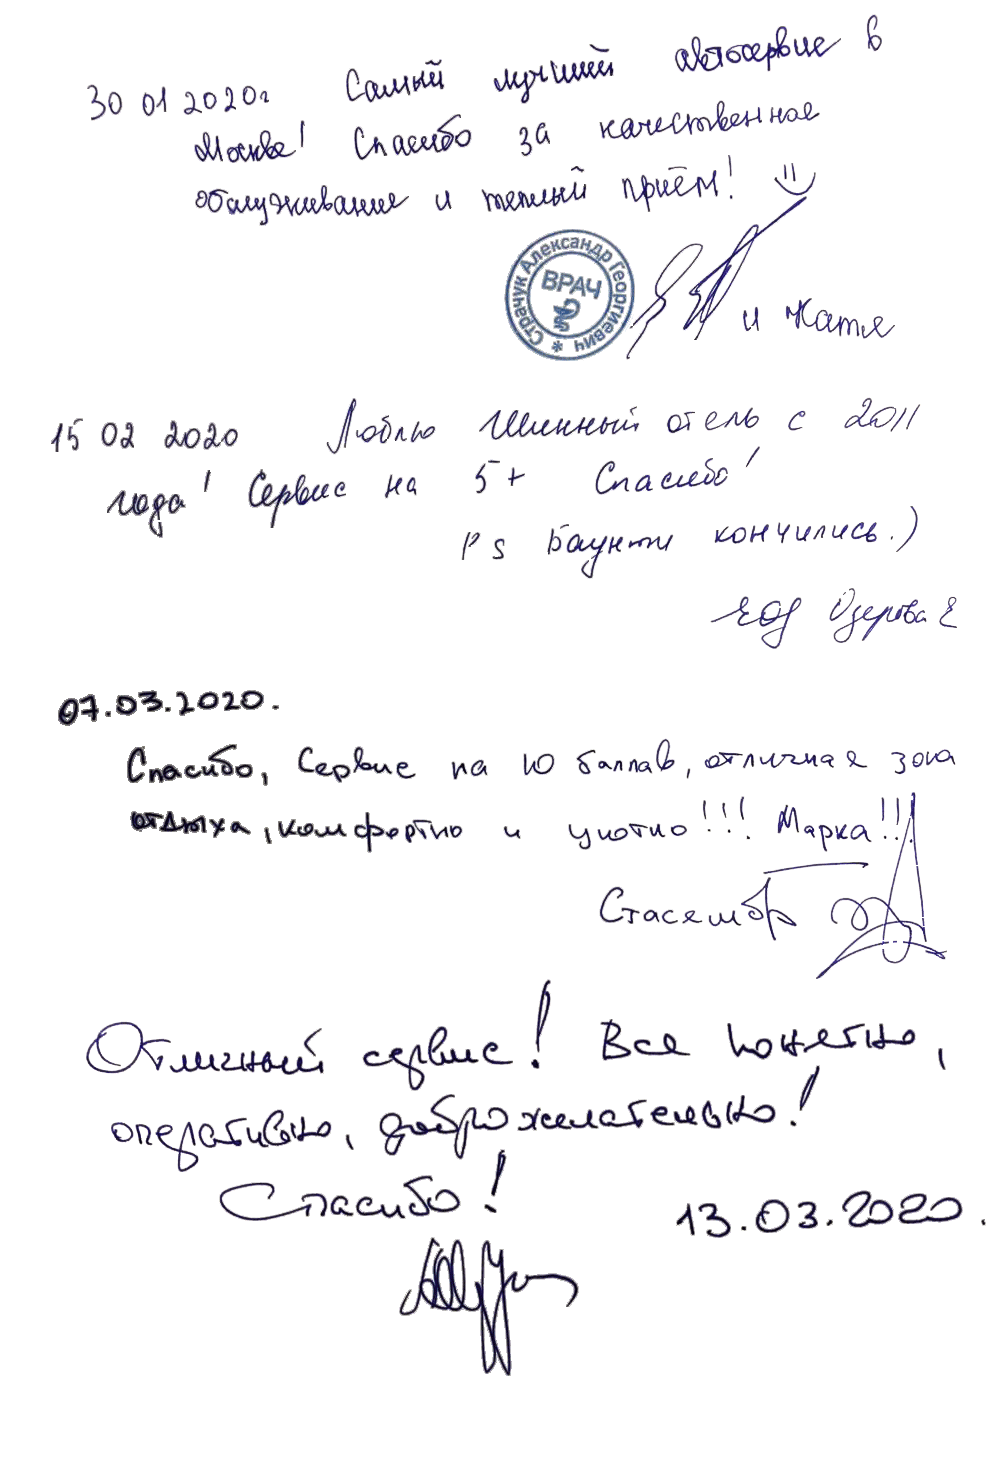 30 01 2020г Самый лучший автосервис в
Москве! Спасибо за качественное
обслуживание и теплый приём!
Страчук Александр Георгиевич *
ВРАЧ
и Катя
15 02 2020 Люблю Шинный отель с 2011
года! Сервис на 5+ Спасибо!
Ps Баунти кончились.)
Озерова Е
07.03.2020.
Спасибо, Сервис на 10 баллав, отличная зона
отдыха, комфортно и уютно!!! Марка!!!
Отличный сервис! Все понятно,
оперативно, доброжелательно!
Спасибо!
13.03.2020.